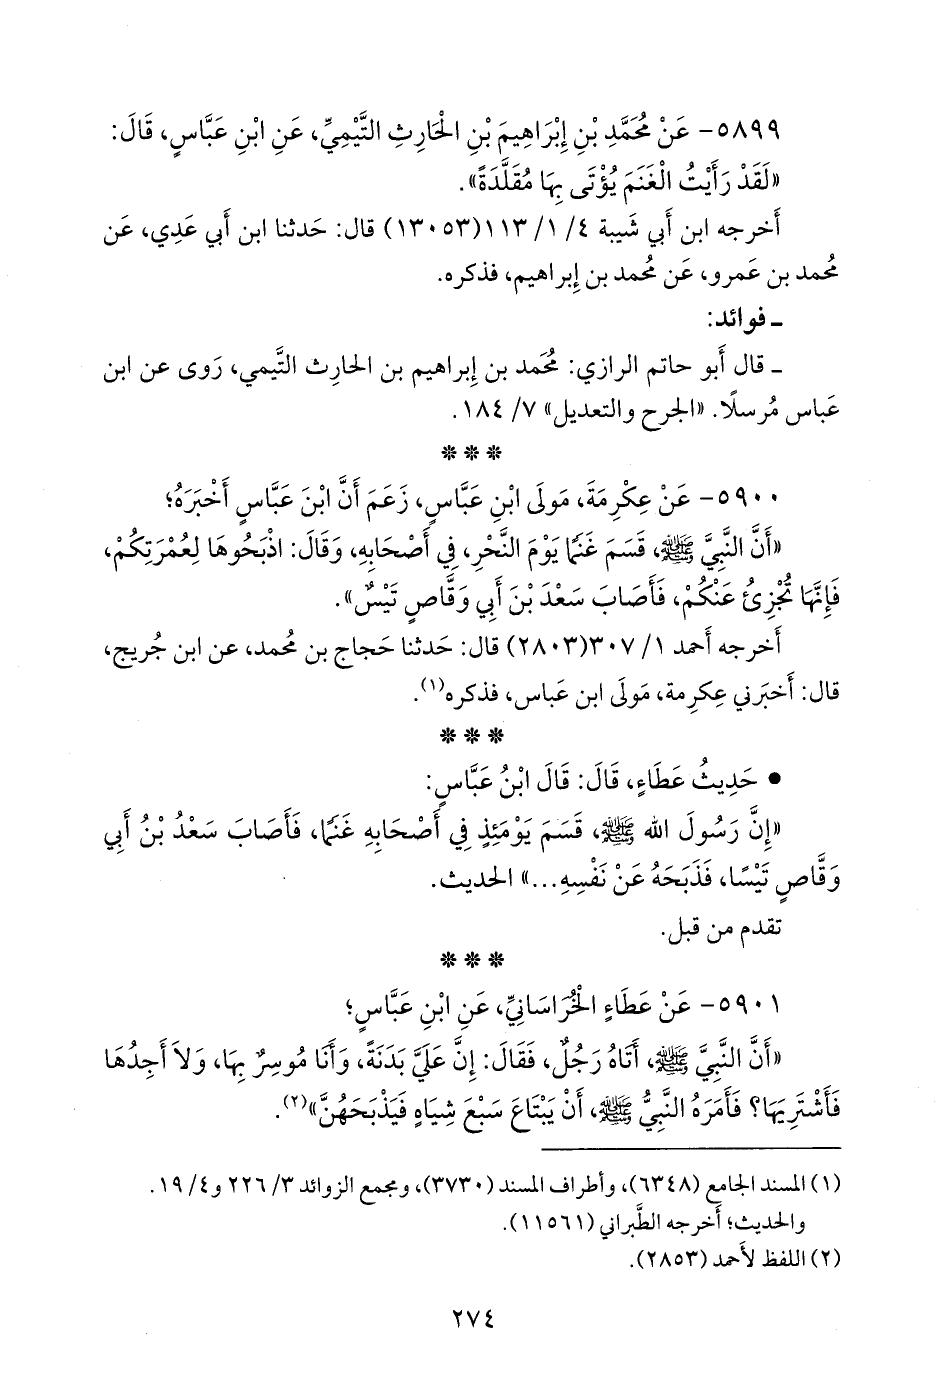 ٥٨٩٩- عَنْ مُحَمَّدِ بْنِ إِبْرَاهِيمَ بْنِ الْحَارِثِ التَّيْمِيِّ، عَنِ ابْنِ عَبَّاسٍ، قَالَ:
«لَقَدْ رَأَيْتُ الْغَنَمَ يُؤْتَى بِهَا مُقَلَّدَةً».
أَخرجه ابن أَبي شَيبة ٤/ ١/ ١١٣(١٣٠٥٣) قال: حَدثنا ابن أَبي عَدِي، عَن
مُحمد بن عَمرو، عَن مُحمد بن إِبراهيم، فذكره.
ـ فوائد:
ـ قال أَبو حاتم الرازي: مُحَمد بن إِبراهيم بن الحارِث التَّيمي، رَوى عن ابن
عَباس مُرسلًا. «الجرح والتعديل» ٧/ ١٨٤.
* * *
٥٩٠٠- عَنْ عِكْرِمَةَ، مَولَى ابْنِ عَبَّاسٍ، زَعَمَ أَنَّ ابْنَ عَبَّاسٍ أَخْبَرَهُ؛
«أَنَّ النَّبِيَّ ﷺ، قَسَمَ غَنَمًا يَوْمَ النَّحْرِ، فِي أَصْحَابِهِ، وَقَالَ: اذْبَحُوهَا لِعُمْرَتِكُمْ،
فَإِنَّهَا تُجْزِئُ عَنْكُمْ، فَأَصَابَ سَعْدَ بْنَ أَبِي وَقَّاصٍ تَيْسٌ».
أَخرجه أَحمد ١/ ٣٠٧(٢٨٠٣) قال: حَدثنا حَجاج بن مُحمد، عن ابن جُريج،
قال: أَخبَرني عِكرِمة، مَولَى ابن عَباس، فذكره(١).
* * *
• حَدِيثُ عَطَاءٍ، قَالَ: قَالَ ابْنُ عَبَّاسٍ:
«إِنَّ رَسُولَ الله ﷺ، قَسَمَ يَوْمَئِذٍ فِي أَصْحَابِهِ غَنَمًا، فَأَصَابَ سَعْدُ بْنُ أَبِي
وَقَّاصٍ تَيْسًا، فَذَبَحَهُ عَنْ نَفْسِهِ...» الحديث.
تقدم من قبل.
* * *
٥٩٠١- عَنْ عَطَاءٍ الْخُرَاسَانِيِّ، عَنِ ابْنِ عَبَّاسٍ؛
«أَنَّ النَّبِيَّ ﷺ، أَتَاهُ رَجُلٌ، فَقَالَ: إِنَّ عَلَيَّ بَدَنَةً، وَأَنَا مُوسِرٌ بِهَا، وَلاَ أَجِدُهَا
فَأَشْتَرِيَهَا؟ فَأَمَرَهُ النَّبِيُّ ﷺ، أَنْ يَبْتَاعَ سَبْعَ شِيَاهٍ فَيَذْبَحَهُنَّ»(٢).
(١) المسند الجامع (٦٣٤٨)، وأطراف المسند (٣٧٣٠)، ومجمع الزوائد ٣/ ٢٢٦ و٤/ ١٩.
والحديث؛ أخرجه الطَّبراني (١١٥٦١).
(٢) اللفظ لأَحمد (٢٨٥٣).
٢٧٤